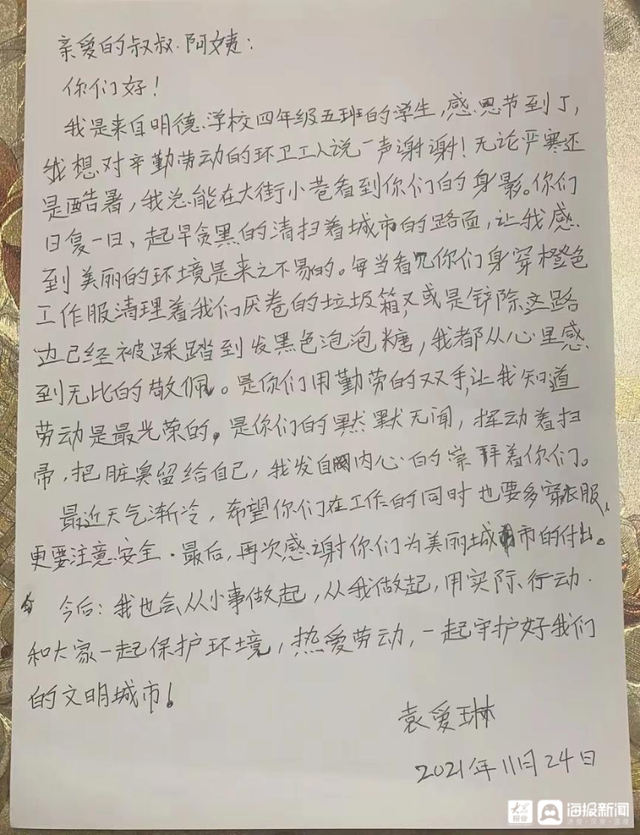 亲爱的叔叔.阿姨:
你们好!
我是来自明德学校四年级五班的学生,感恩节到了,
我想对辛勤劳动的环卫工人说一声谢谢!无论严寒还
是酷暑,我总能在大街小巷看到你们的身影。你们
日复一日、起早贪黑的清扫着城市的路面,让我感
到美丽的环境是来之不易的。每当看见你们身穿橙色
工作服清理着我们厌卷的垃圾箱,又或是铲除这路
边已经被踩踏到发黑色泡泡糖,我都从心里感
到无比的敬佩。是你们用勤劳的双手,让我知道
劳动是最光荣的。是你们的默默无闻,挥动着扫
帚,把脏臭留给自己,我发自内心的崇拜着你们。
最近天气渐冷,希望你们在工作的同时也要多穿衣服、
更要注意安全.最后,再次感谢你们为美丽城市的付出。
今后:我也会从小事做起,从我做起,用实际行动.
和大家一起保护环境,热爱劳动,一起守护好我们
的文明城市!
袁爱琳
2021年11月24日
海报新闻